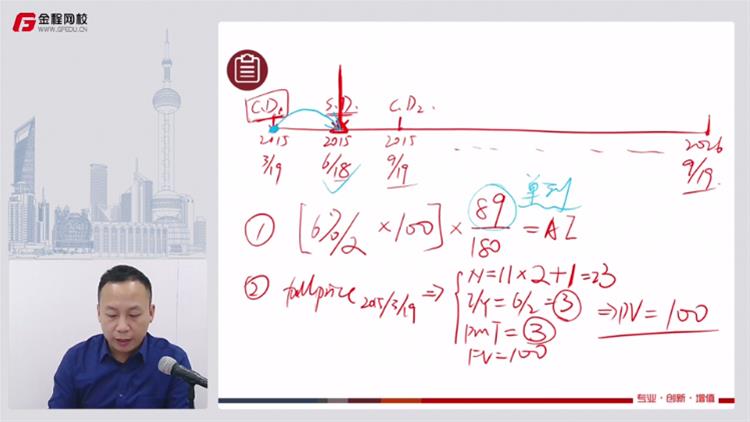 金程网校
WWW.GFEDU.CN
C.D₁ S.D. C.D₂.
2015 2015 2015 2026
3/19 6/18 9/19 9/19
单列
① [6%/2 × 100] × 89/180 = AI
② full price 2015/3/19 ⇒ N=11×2+1=23
I/Y = 6/2 = ③ ⇒ PV = 100
PMT = ③
FV=100
专业·创新·增值